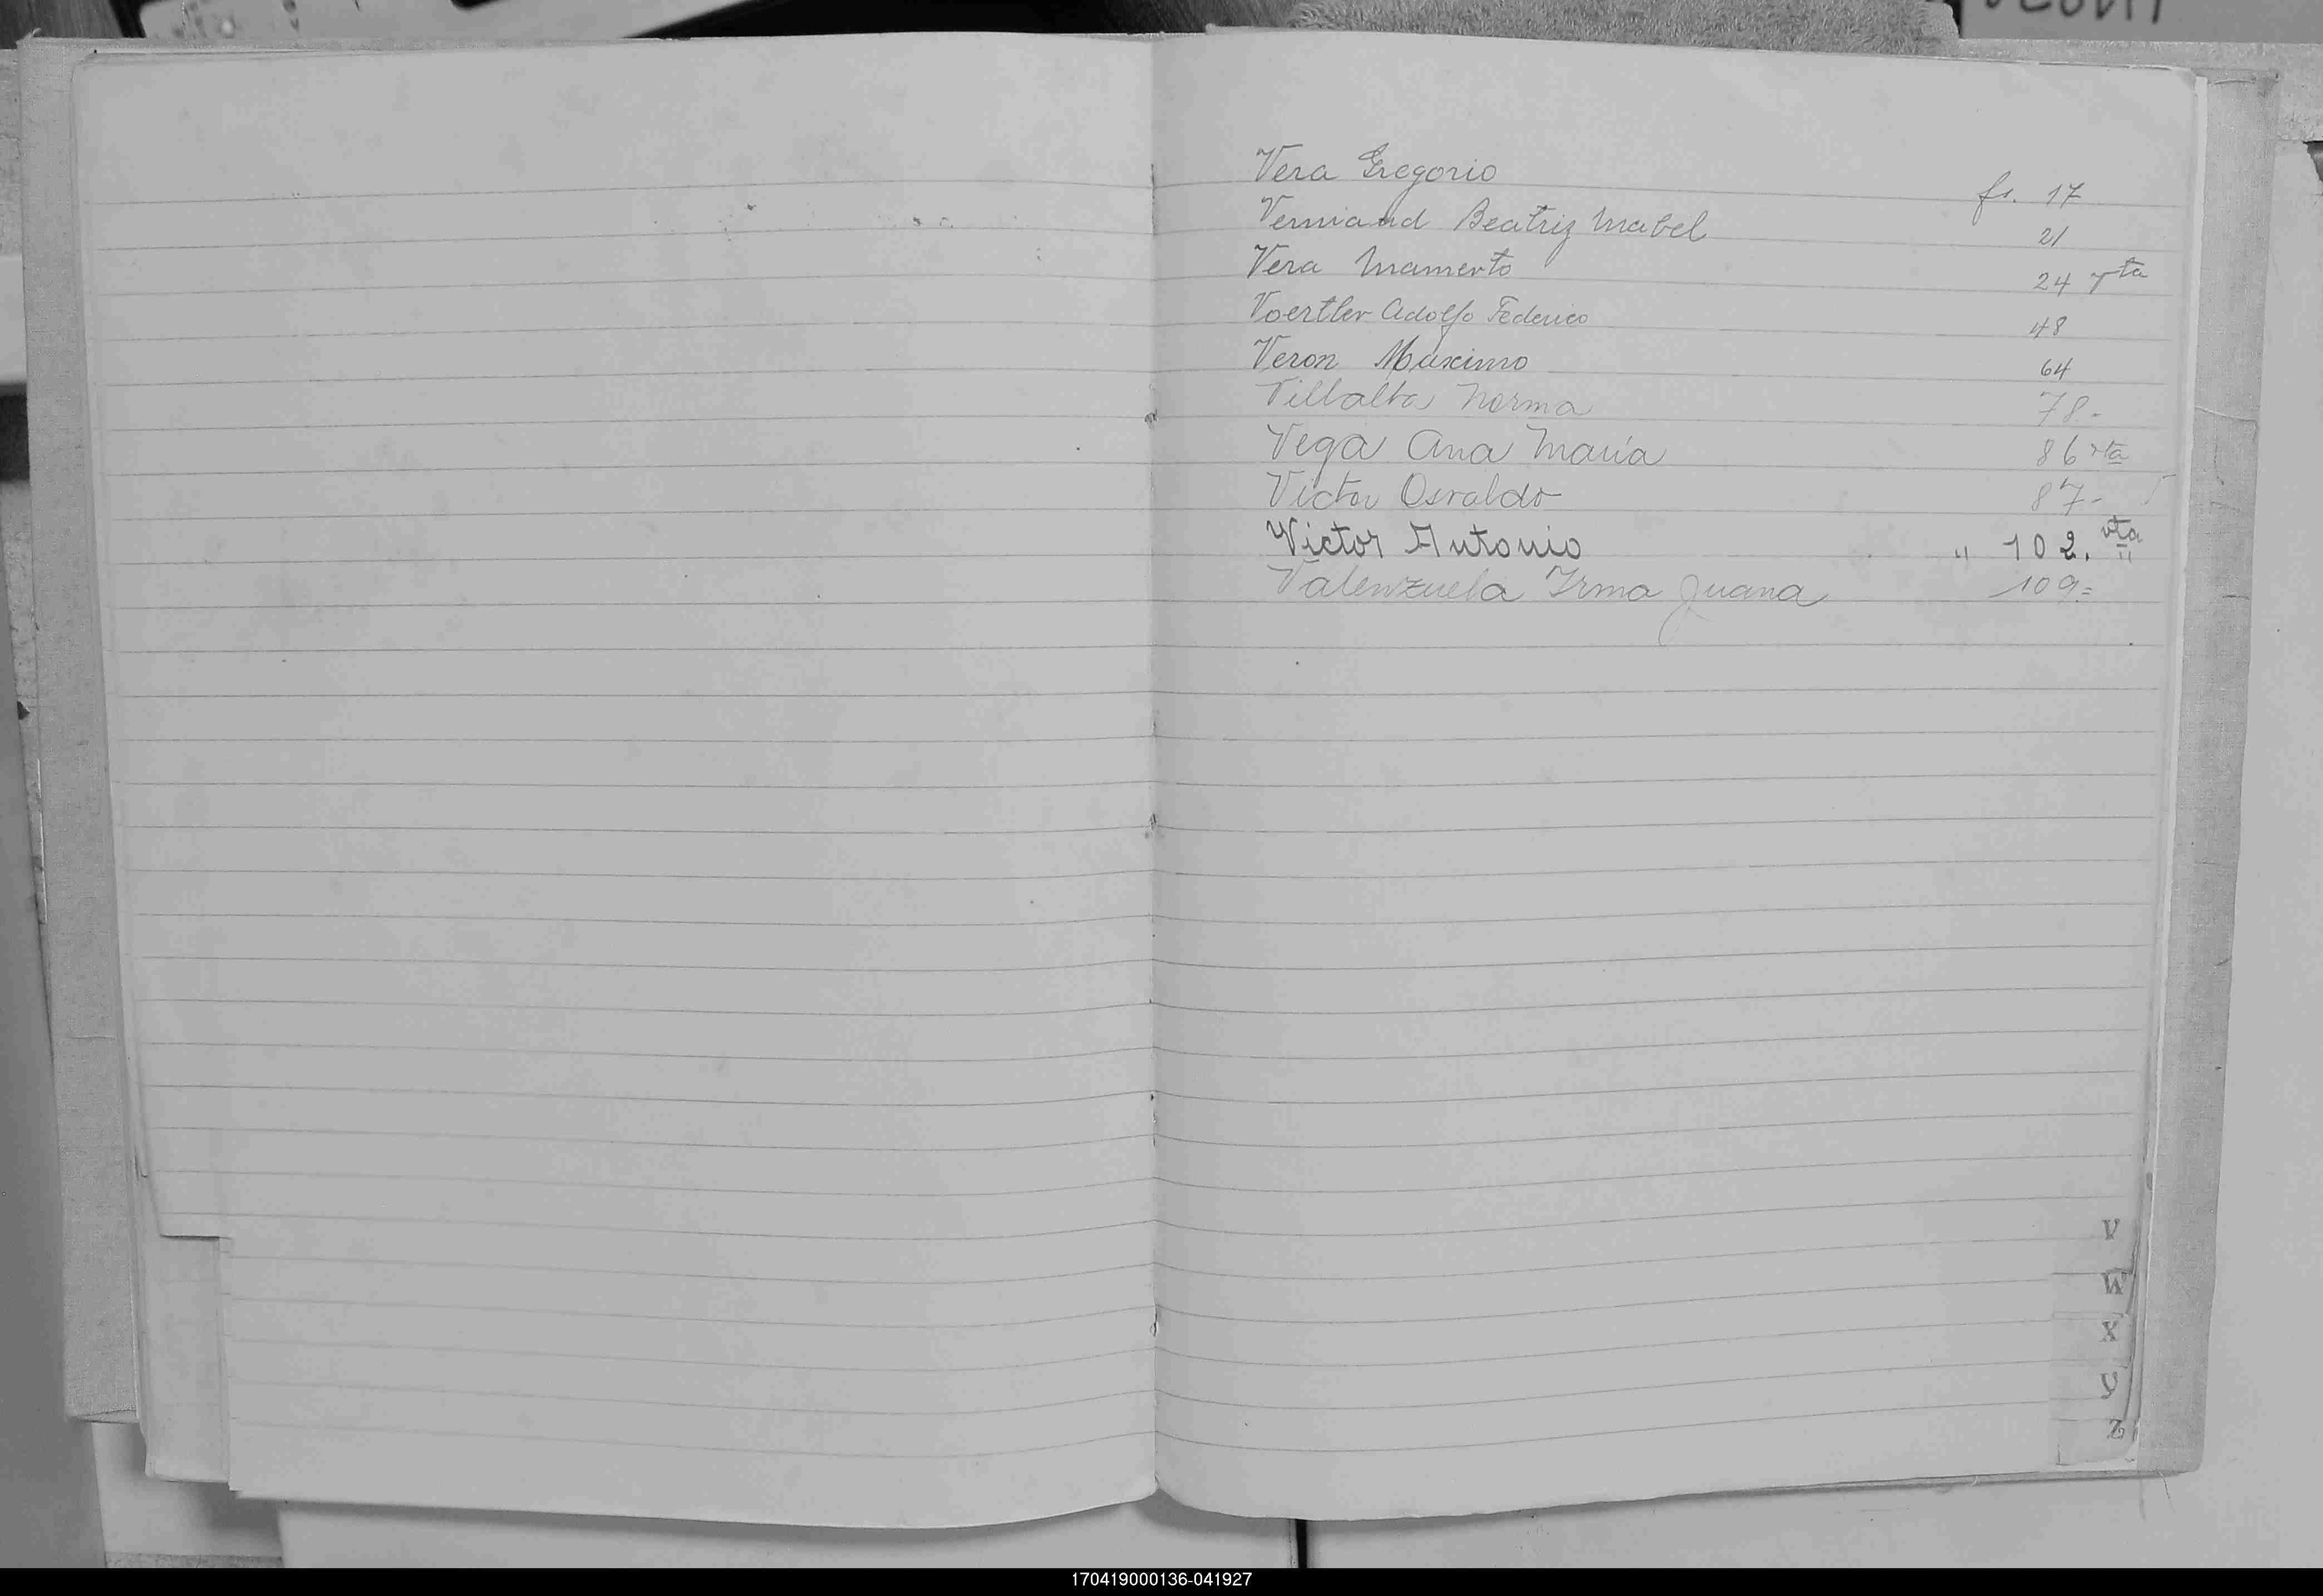 Vera Gregorio fs. 17
Verniaud Beatriz Mabel 21
Vera Mamerto 24 vta
Voertler Adolfo Federico 48
Veron Maximo 64
Villalba Norma 78.-
Vega Ana María 86 vta
Victor Osvaldo 87.-
Victor Antonio " 102. vta
Valenzuela Irma Juana 109.=
V
W
X
Y
Z
170419000136-041927